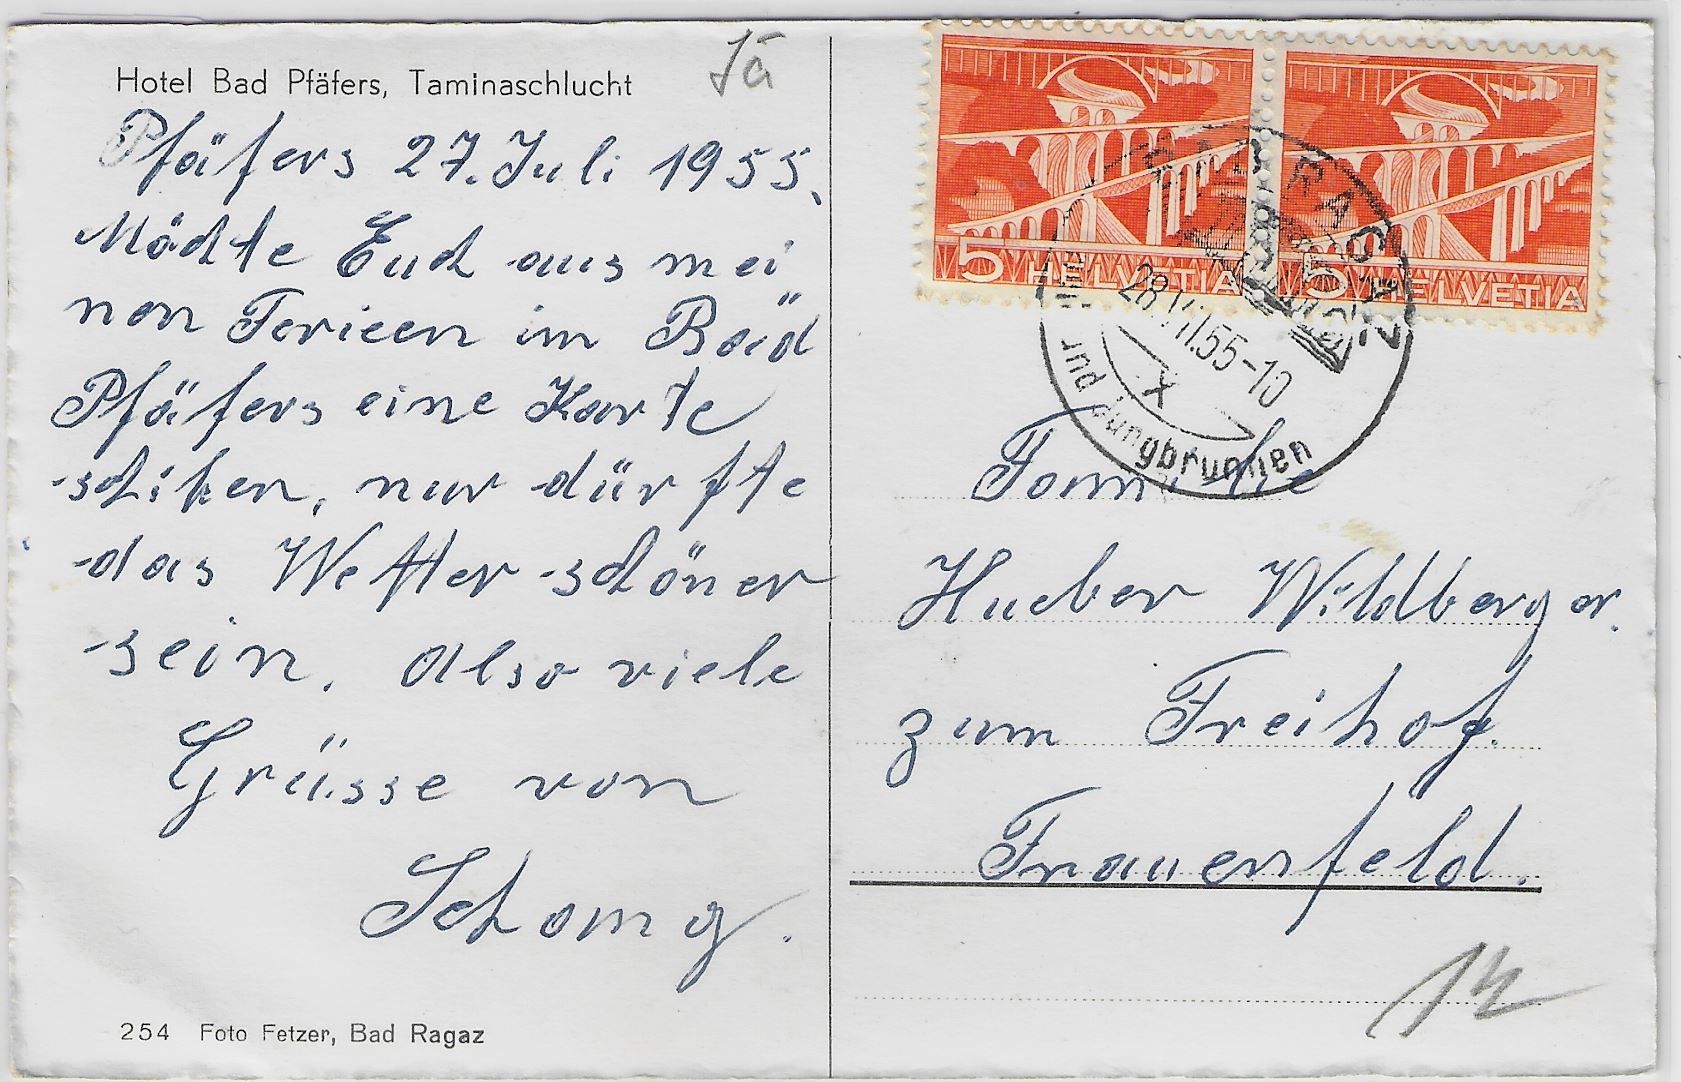 Hotel Bad Pfäfers, Taminaschlucht
Jä
Pfäfers 27. Juli 1955.
Möchte Euch aus mei
nen Ferieen im Bäd
Pfäfers eine Karte
schiken, nur dürfte
das Wetter schöner
sein. Also viele
Grüsse von
254 Foto Fetzer, Bad Ragaz
5 HELVETIA
5 HELVETIA
BAD RAGAZ
28.VII.55-10
X
und Jungbrunnen
Familie
Hueber Wildberger.
zum Freihof.
Frauenfeld.